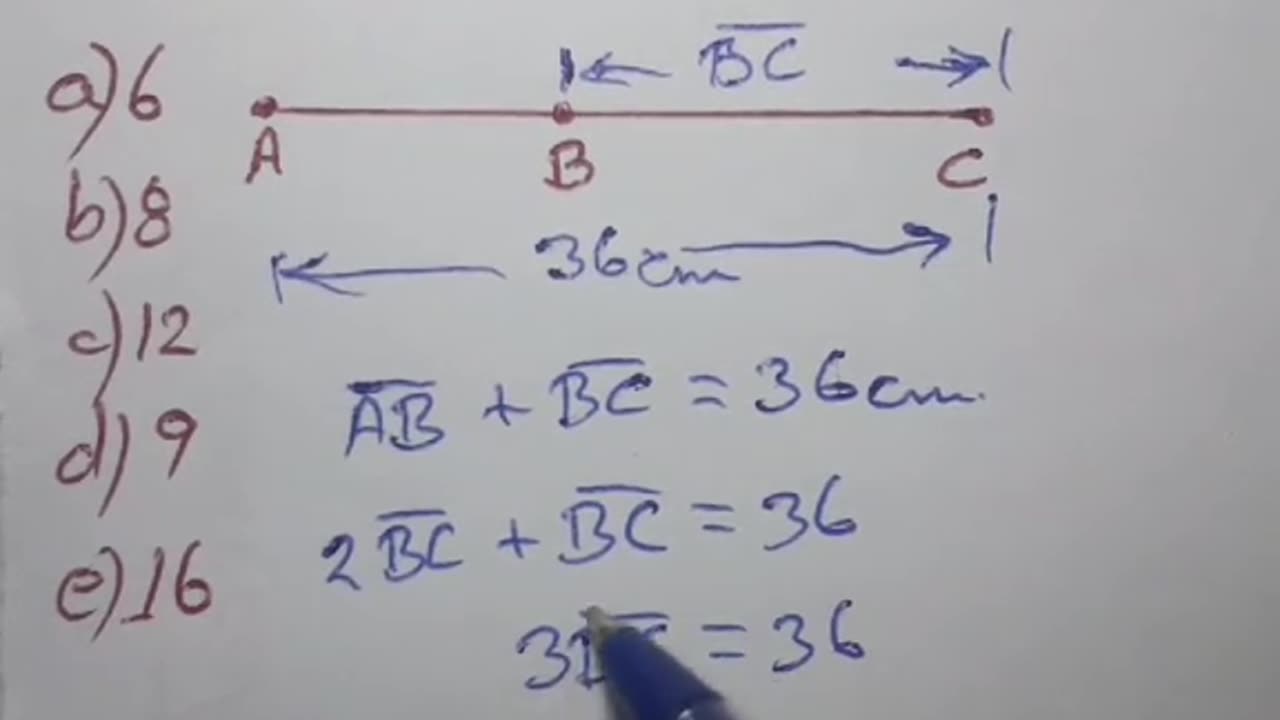 a) 6
b) 8
c) 12
d) 9
e) 16
BC
A B C
36cm
AB + BC = 36cm.
2BC + BC = 36
= 36